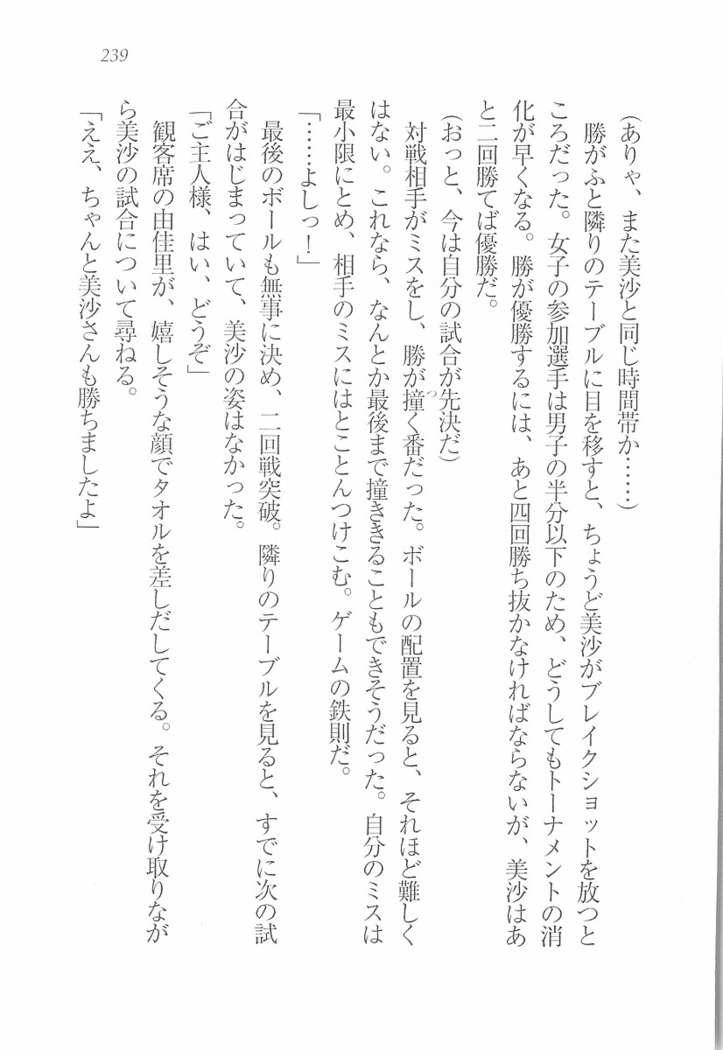 239
(ありゃ、また美沙と同じ時間帯か……)
勝がふと隣りのテーブルに目を移すと、ちょうど美沙がブレイクショットを放つと
ころだった。女子の参加選手は男子の半分以下のため、どうしてもトーナメントの消
化が早くなる。勝が優勝するには、あと四回勝ち抜かなければならないが、美沙はあ
と二回勝てば優勝だ。
(おっと、今は自分の試合が先決だ)
対戦相手がミスをし、勝が撞く番だった。ボールの配置を見ると、それほど難しく
つ
はない。これなら、なんとか最後まで撞ききることもできそうだった。自分のミスは
最小限にとめ、相手のミスにはとことんつけこむ。ゲームの鉄則だ。
「……よしっ！」
最後のボールも無事に決め、二回戦突破。隣りのテーブルを見ると、すでに次の試
合がはじまっていて、美沙の姿はなかった。
「ご主人様、はい、どうぞ」
観客席の由佳里が、嬉しそうな顔でタオルを差しだしてくる。それを受け取りなが
ら美沙の試合について尋ねる。
「ええ、ちゃんと美沙さんも勝ちましたよ」